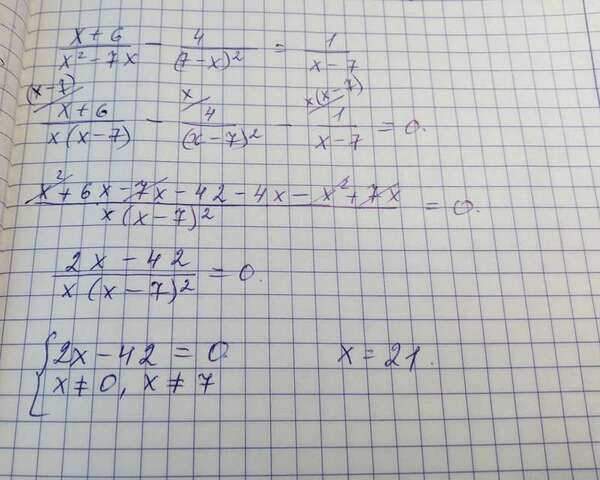 (x+6)/(x² - 7x) - 4/(7-x)² = 1/(x-7)
(x-7) x x(x-7)
(x+6)/(x(x-7)) - 4/(x-7)² - 1/(x-7) = 0.
(x² + 6x - 7x - 42 - 4x - x² + 7x)/(x(x-7)²) = 0.
(2x - 42)/(x(x-7)²) = 0.
{ 2x - 42 = 0 x = 21.
x ≠ 0, x ≠ 7